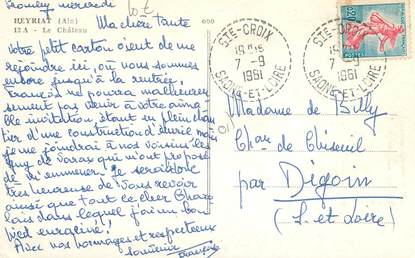 mercredi
HEYRIAT (Ain)
12 A - Le Château
Ma chère Tante
Votre petit carton vient de me
rejoindre ici, où nous sommes
encore jusqu'à la rentrée.
François ne pourra malheureu-
sement pas venir à votre aima-
ble invitation, étant en plein chan-
tier d'une construction d'écurie mais
je me joindrai à nos voisins les
Guy de Varax qui m'ont proposé
de m'emmener. Je serai donc
très heureuse de vous revoir
ainsi que tout le cher Charo-
lais dans lequel j'ai un bon
pied enraciné!
Avec nos hommages et respectueux
souvenirs
STE-CROIX
7-9
1961
SAONE-ET-LOIRE
STE-CROIX
7-9
1961
SAONE-ET-LOIRE
Madame de Billy
Chau de Chiseuil
par Digoin
(S. et Loire)